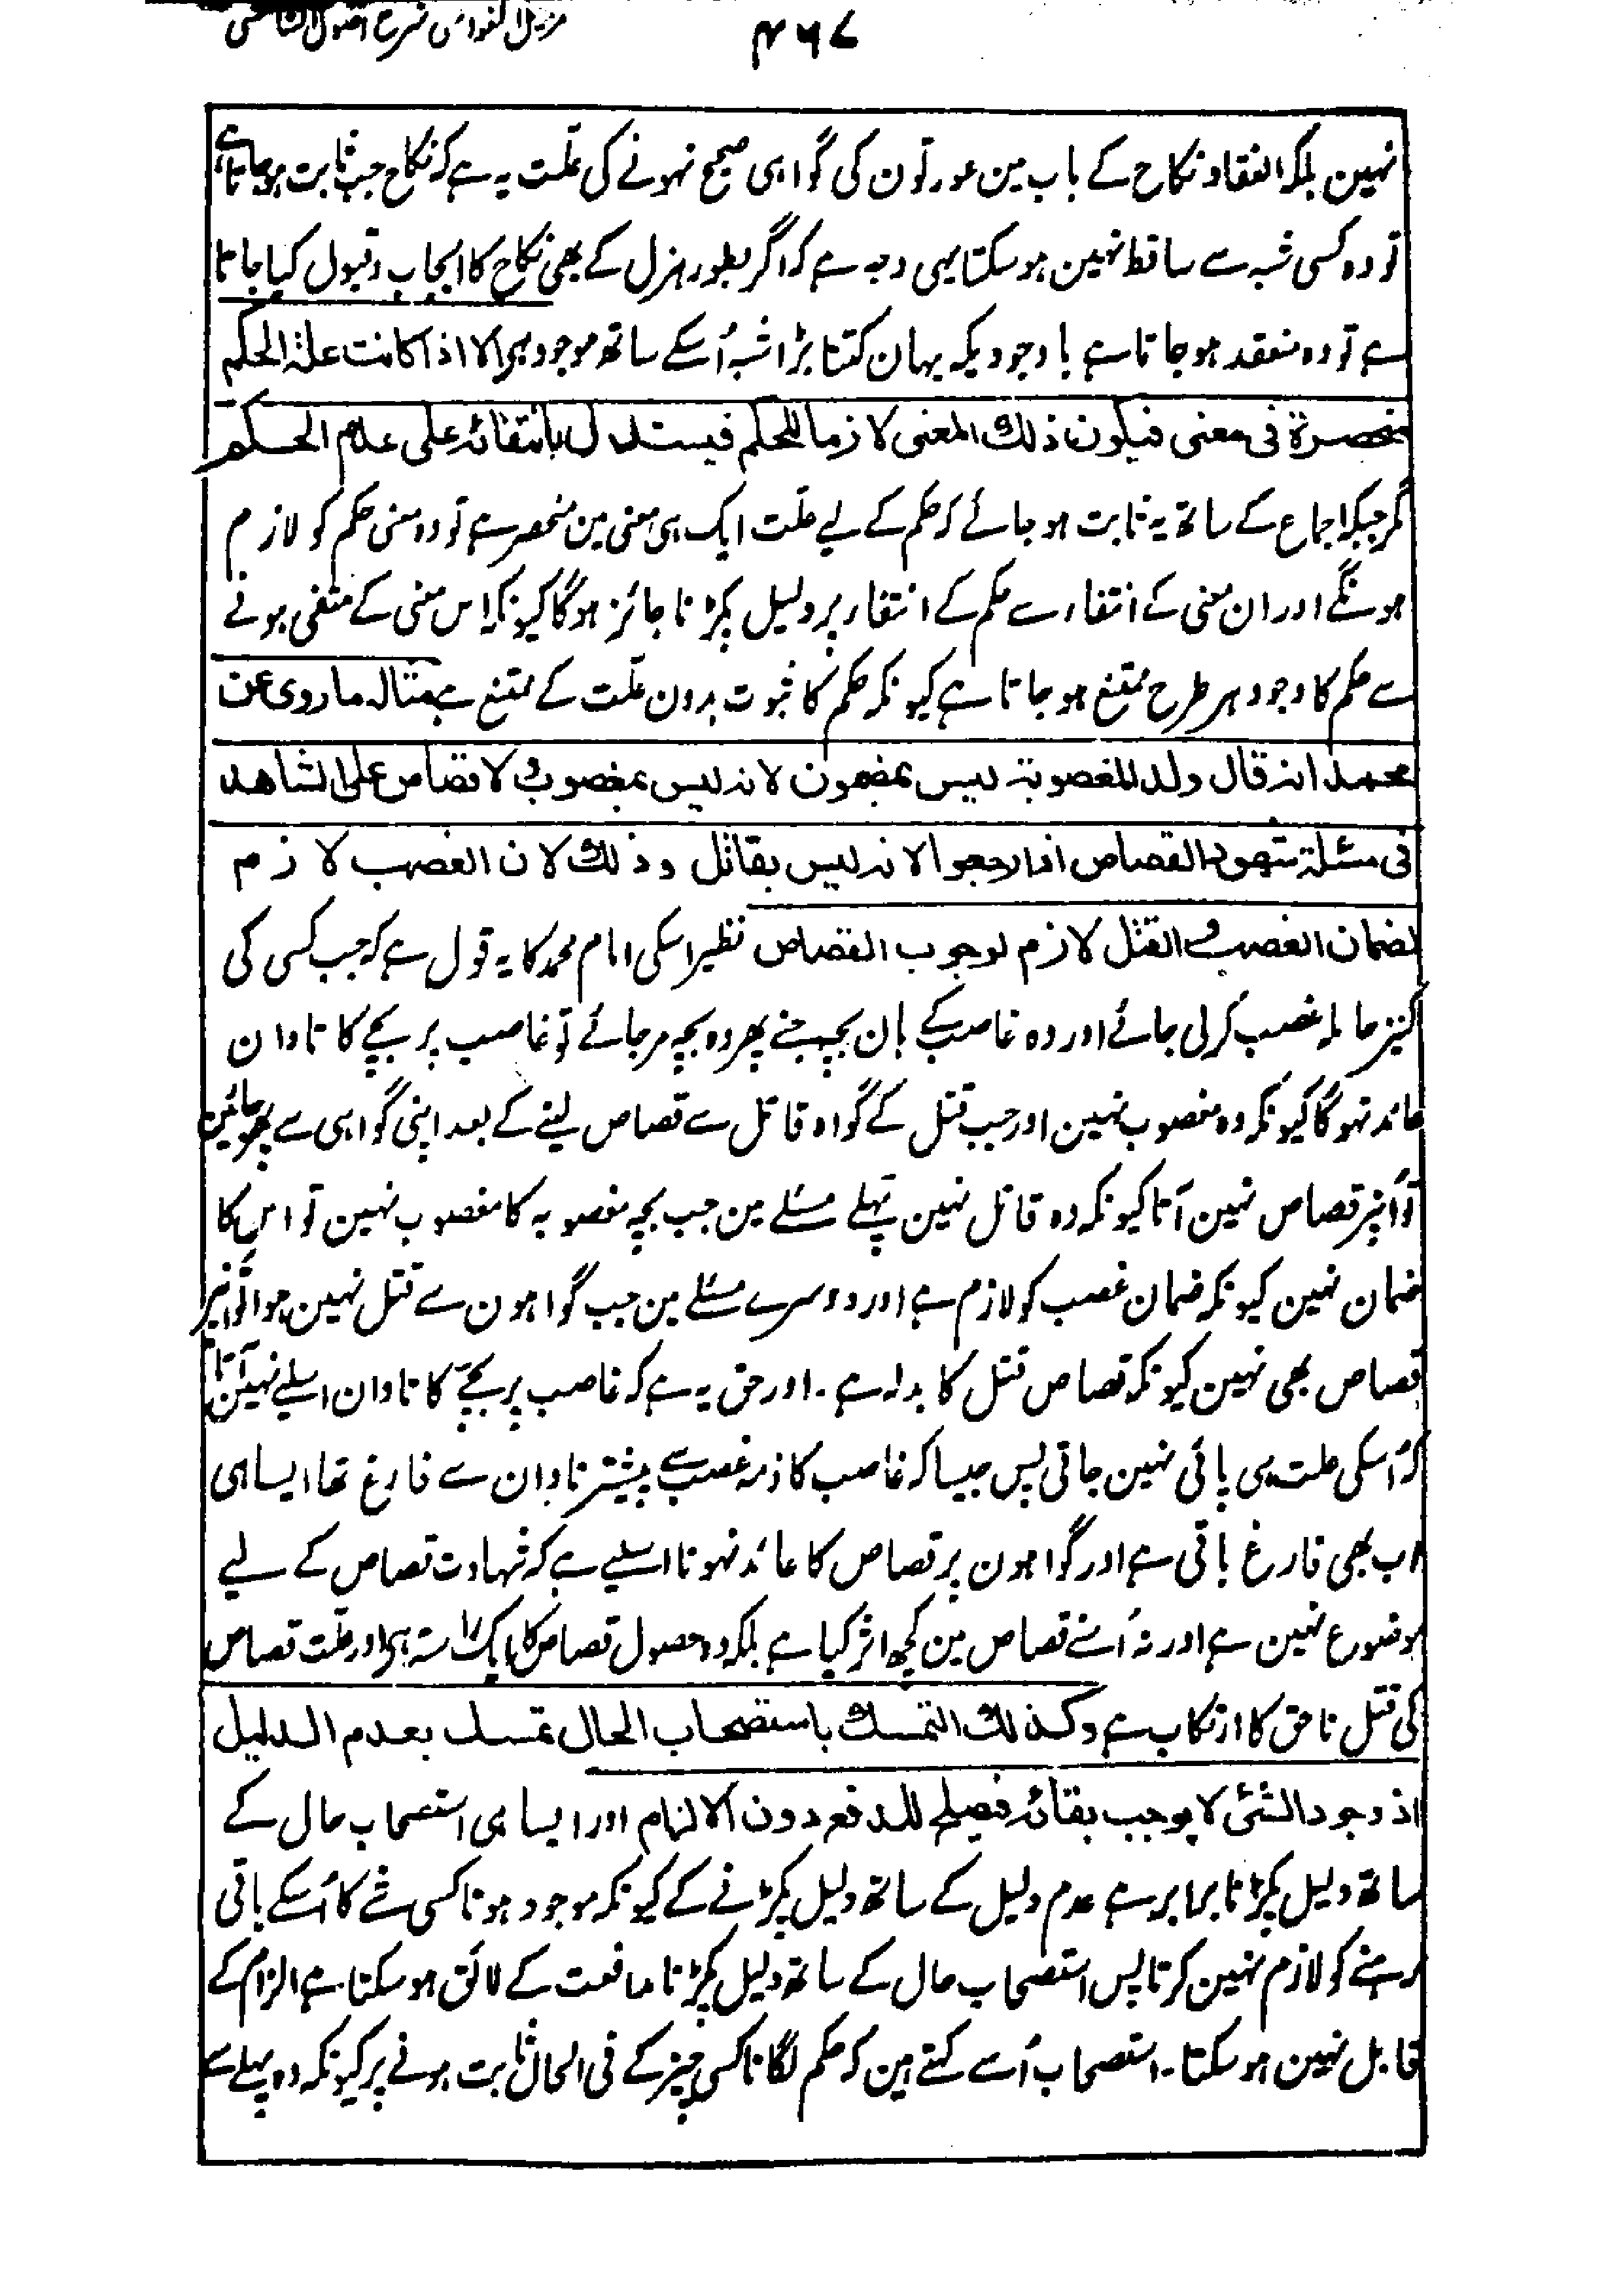 ۴۶۷
نہین بلکہ انعقاد نکاح کے باب مین عورتون کی گواہی صحیح نہونے کی علّت یہ ہے کہ نکاح جب ثابت ہوجاتا ہے
تو وہ کسی شبہ سے ساقط نہین ہوسکتا یہی وجہ ہے کہ اگر بطور ہزل کے بھی نکاح کا ایجاب و قبول کیا جاتا
ہے تو وہ منعقد ہوجاتا ہے باوجودیکہ یہان کتنا بڑا شبہ اُسکے ساتھ موجود ہے الا اذا کانت علۃ الحکم
منحصرۃ فی معنی فیکون ذلک المعنی لازما للحکم فیستدل بانتفائہ علی عدم الحکم
مگر جبکہ اجماع کے ساتھ یہ ثابت ہوجائے کہ حکم کے لیے علّت ایک ہی معنی مین منحصر ہے تو وہ معنی حکم کو لازم
ہونگے اور ان معنی کے انتفاء سے حکم کے انتفاء پر دلیل پکڑنا جائز ہوگا کیونکہ اس معنی کے منتفی ہونے
سے حکم کا وجود ہر طرح ممتنع ہوجاتا ہے کیونکہ حکم کا ثبوت بدون علّت کے ممتنع ہے مثالہ ماروی عن
محمد انہ قال ولد المغصوبۃ لیس بمضمون لانہ لیس بمغصوب ولا قصاص علی الشاھد
فی مسئلۃ شھود القصاص اذا رجعوا لانہ لیس بقاتل وذلک لان الغصب لازم
لضمان الغصب والقتل لازم لوجوب القصاص نظیر اسکی امام محمد کا یہ قول ہے کہ جب کسی کی
کنیز حاملہ غصب کرلی جائے اور وہ غاصب کے ہان بچہ جنے پھر وہ بچہ مرجائے تو غاصب پر بچے کا تاوان
عائد نہوگا کیونکہ وہ مغصوب نہین اور جب قتل کے گواہ قاتل سے قصاص لینے کے بعد اپنی گواہی سے پھر جائین
تو اُنپر قصاص نہین آتا کیونکہ وہ قاتل نہین پہلے مسئلے مین جب بچہ مغصوبہ کا مغصوب نہین تو اس کا
ضمان نہین کیونکہ ضمان غصب کو لازم ہے اور دوسرے مسئلے مین جب گواہون سے قتل نہین ہوا تو اُنپر
قصاص بھی نہین کیونکہ قصاص قتل کا بدلہ ہے۔ اور حق یہ ہے کہ غاصب پر بچّے کا تاوان اسلیے نہین آتا
کہ اُسکی علت ہی پائی نہین جاتی پس جیسا کہ غاصب کا ذمہ غصب سے پیشتر تاوان سے فارغ تھا ایسا ہی
اب بھی فارغ باقی ہے اور گواہون پر قصاص کا عائد نہونا اسلیے ہے کہ شہادت قصاص کے لیے
موضوع نہین ہے اور نہ اُسنے قصاص مین کچھ اثر کیا ہے بلکہ وہ حصول قصاص کا ایک راستہ ہے اور علّت قصاص
کی قتل ناحق کا ارتکاب ہے وکذلک التمسک باستصحاب الحال تمسک بعدم الدلیل
اذ وجود الشئی لایوجب بقائہ فیصلح للدفع دون الالزام اور ایسا ہی استصحاب حال کے
ساتھ دلیل پکڑنا برابر ہے عدم دلیل کے ساتھ دلیل پکڑنے کے کیونکہ موجود ہونا کسی شے کا اُسکے باقی
رہنے کو لازم نہین کرتا پس استصحاب حال کے ساتھ دلیل پکڑنا مدافعت کے لائق ہوسکتا ہے الزام کے
قابل نہین ہوسکتا۔ استصحاب اُسے کہتے ہین کہ حکم لگانا کسی چیز کے فی الحال ثابت ہونے پر کیونکہ وہ پہلے سے